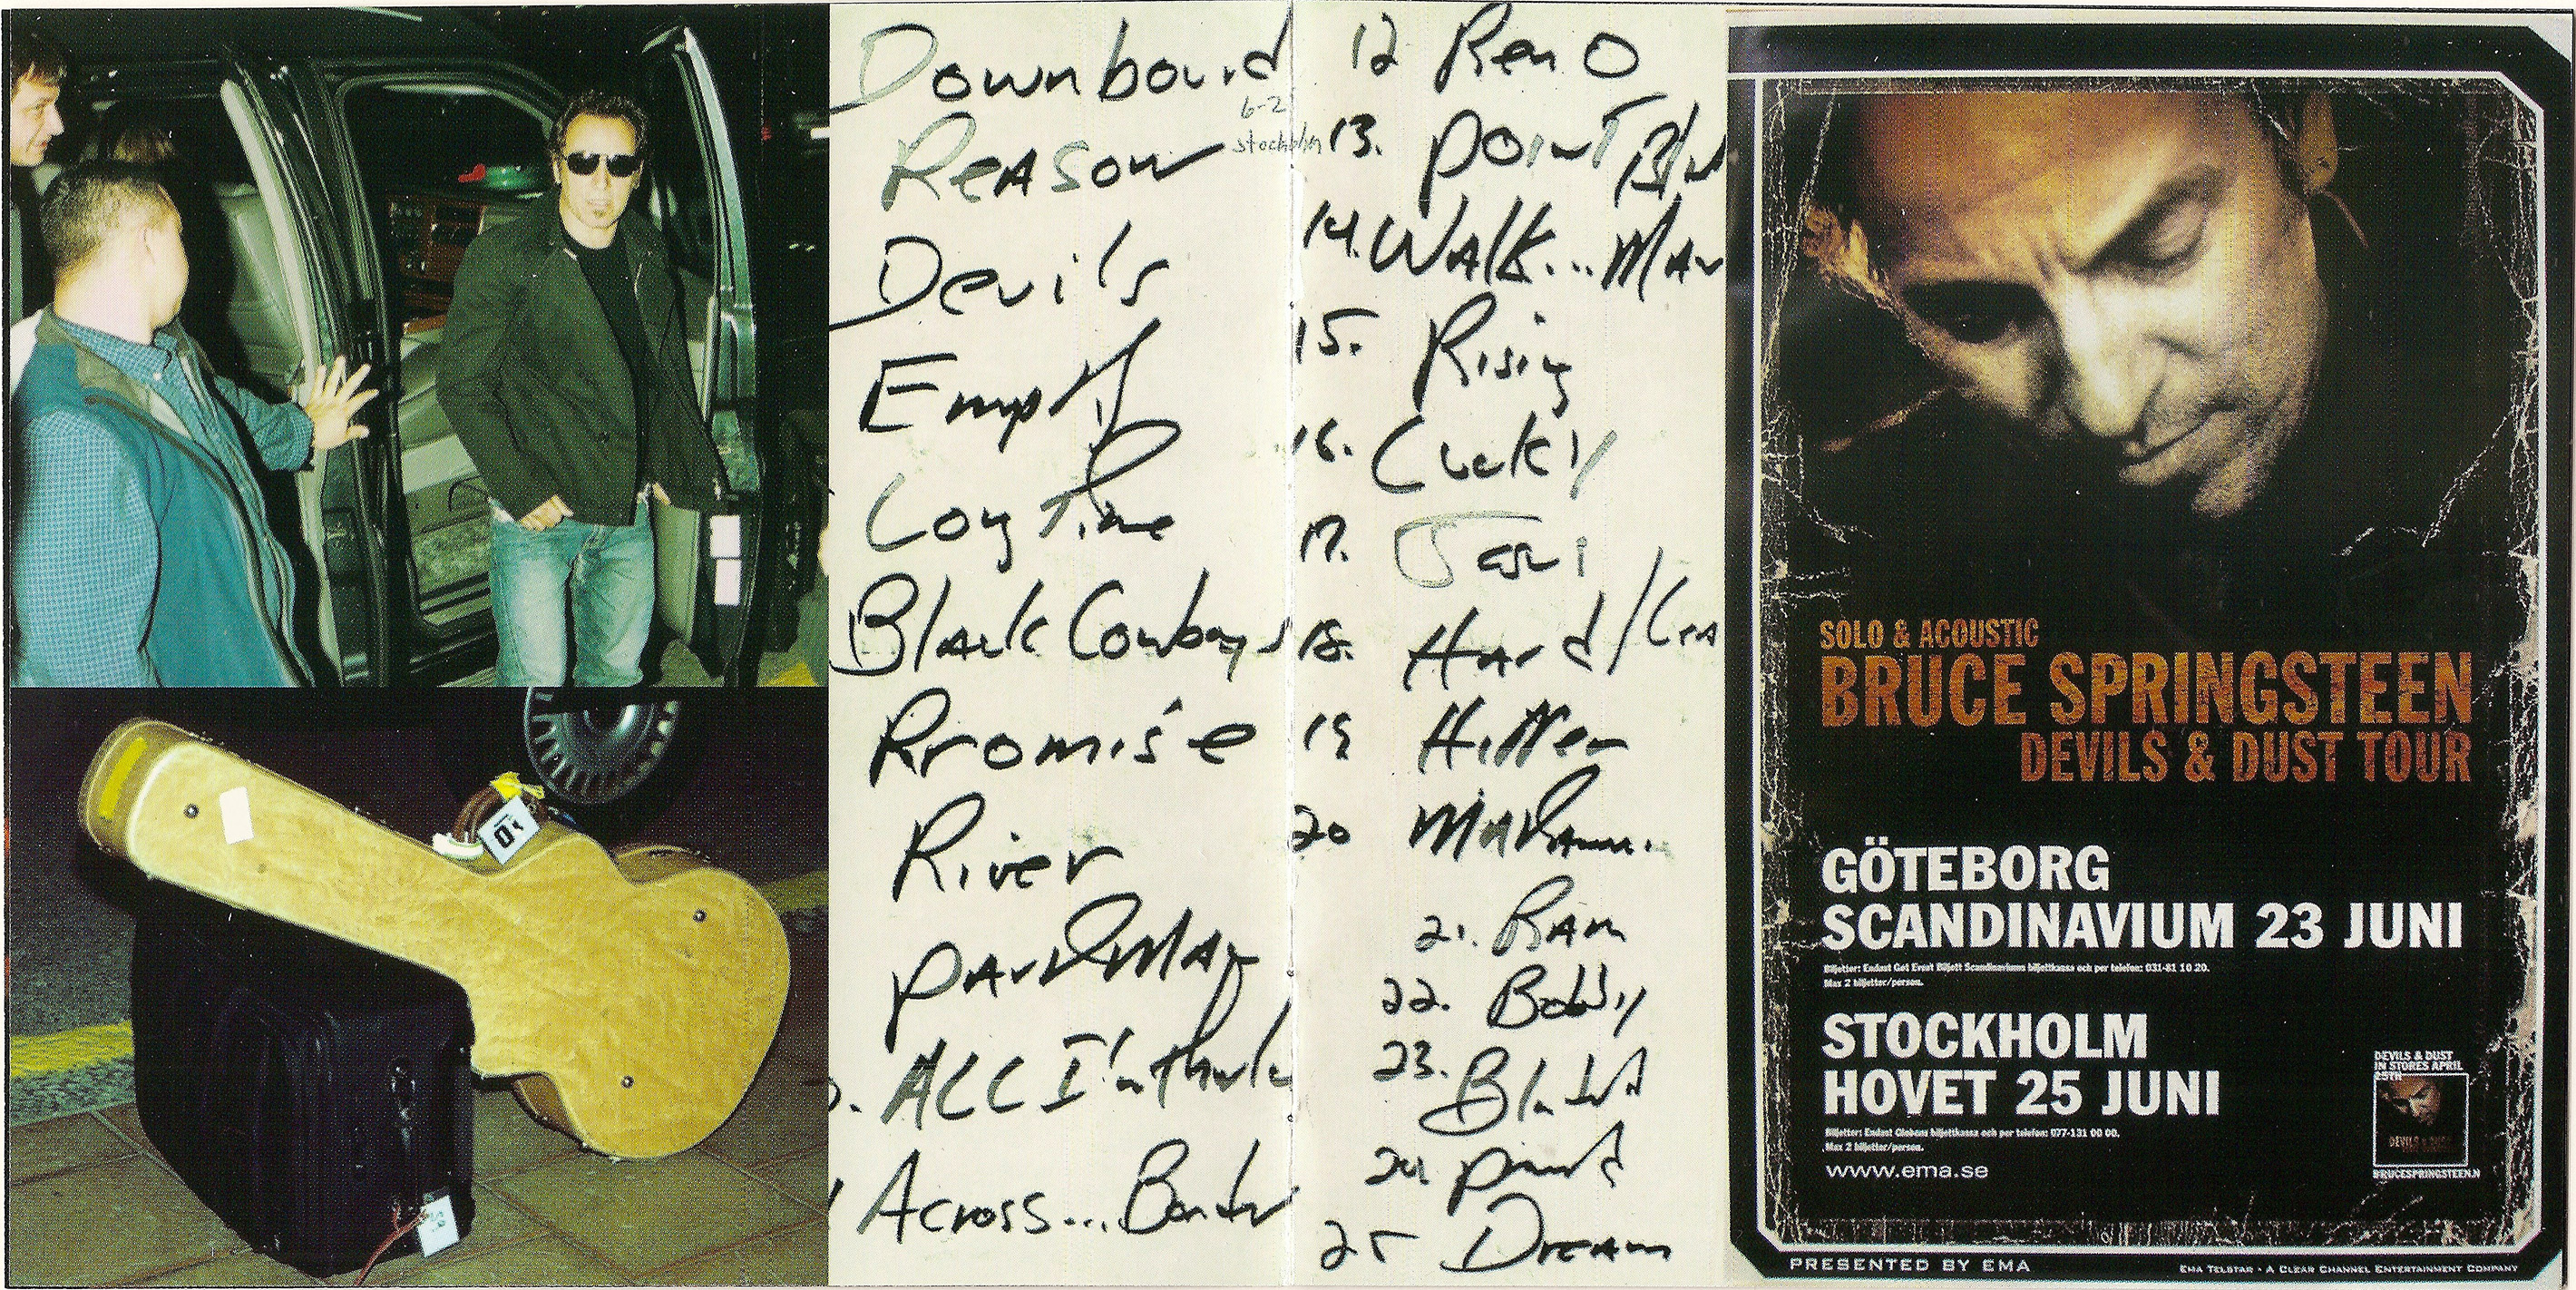 Downbound
6-2
Stockholm
Reason
Devils
Empty
Long Time
Black Cowboys
Promise
River
Part Man
ALL I'm Thinkin
Across... Border
12 Reno
13. Point Blank
14. Walk... Man
15. Rising
16. Lucky
17. Jesus
18. Hard/Lea
19 Hitter
20 Matamoros
21. Ram
22. Bobby
23. Blinded
24. Promised
25 Dream
SOLO & ACOUSTIC
BRUCE SPRINGSTEEN
DEVILS & DUST TOUR
GÖTEBORG
SCANDINAVIUM 23 JUNI
Biljetter: Endast Got Event Biljett Scandinaviums biljettkassa och per telefon: 031-81 10 20.
Max 2 biljetter/person.
STOCKHOLM
HOVET 25 JUNI
Biljetter: Endast Globens biljettkassa och per telefon: 077-131 00 00.
Max 2 biljetter/person.
www.ema.se
DEVILS & DUST
IN STORES APRIL
25TH
DEVILS & DUST
BRUCESPRINGSTEEN.N
PRESENTED BY EMA
EMA TELSTAR • A CLEAR CHANNEL ENTERTAINMENT COMPANY